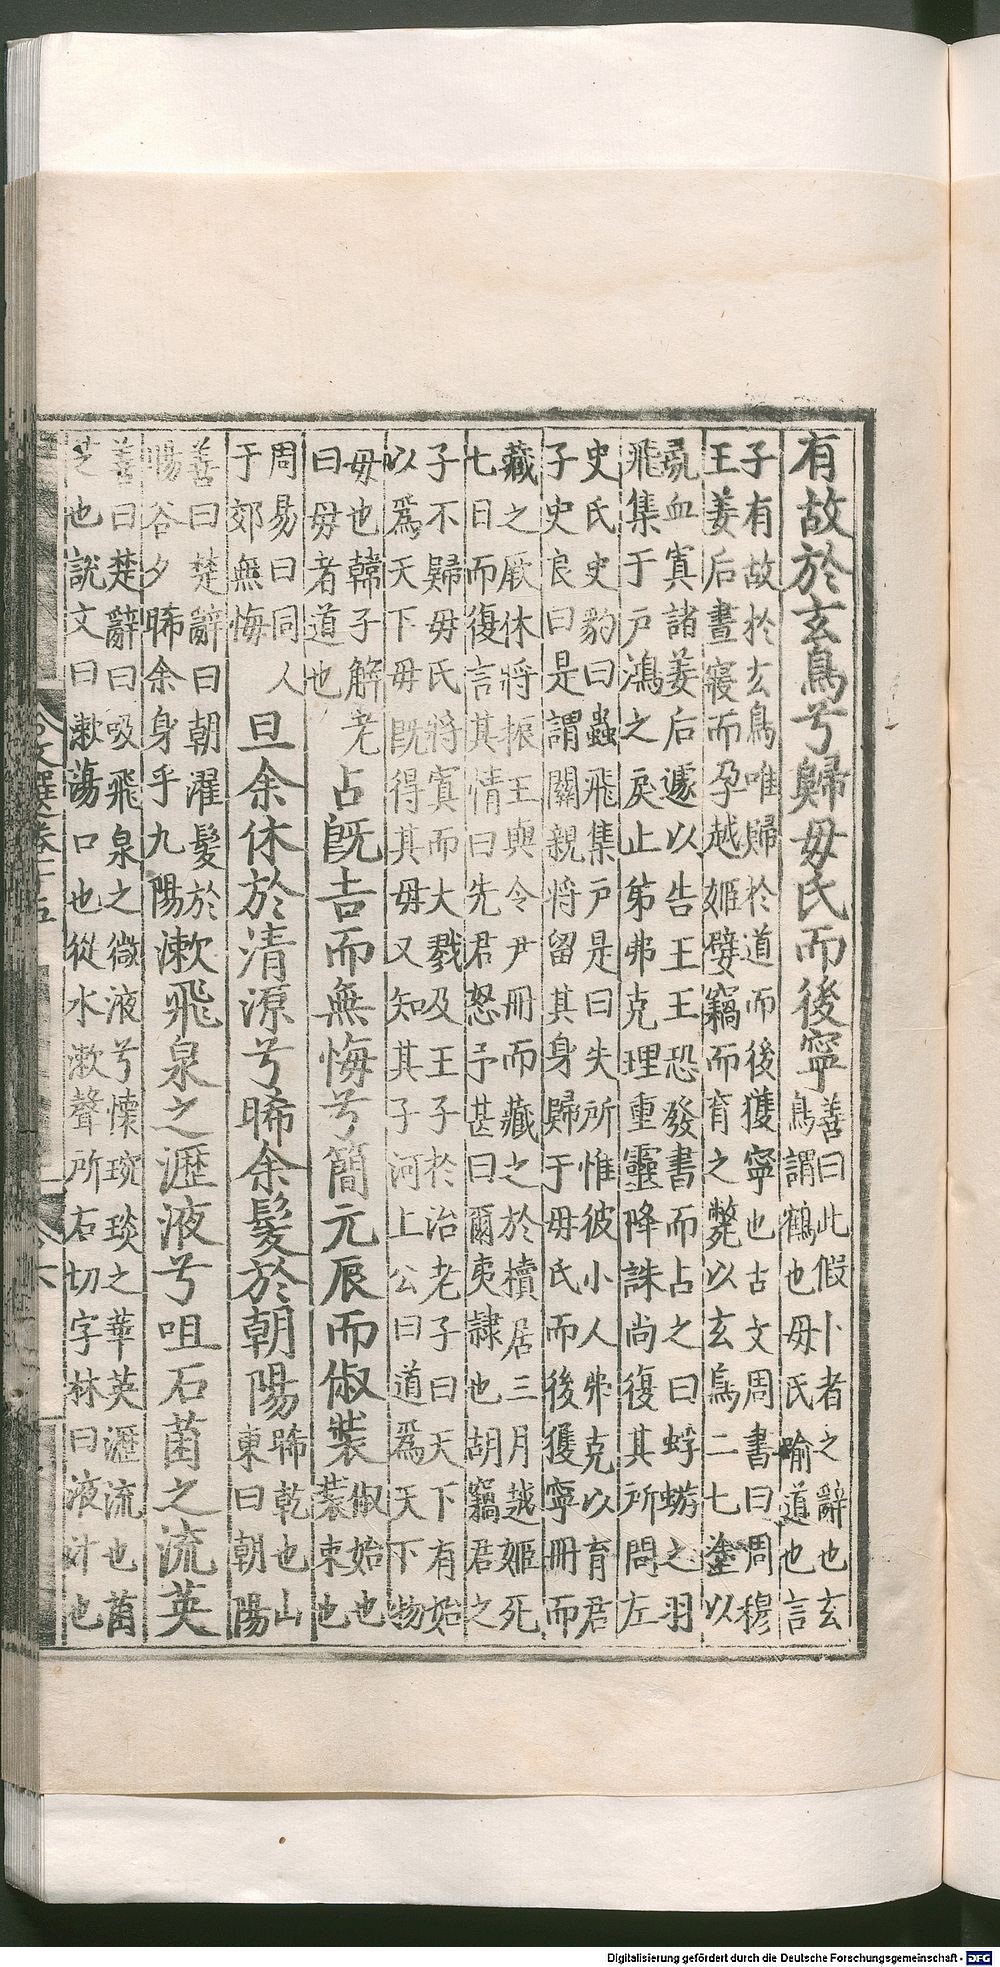 有故於玄鳥兮歸毋氏而後寧善曰此假卜者之辭也玄
鳥謂鶴也毋氏喻道也言
子有故於玄鳥唯歸於道而後獲寧也古文周書曰周穆
王姜后晝寢而孕越姬嬖竊而育之斃以玄鳥二七塗以
彘血寘諸姜后遽以告王王恐發書而占之曰蜉蝣之羽
飛集于戶鴻之戾止弟弗克理重靈降誅尚復其所問左
史氏史豹曰蟲飛集戶是曰失所惟彼小人弗克以育君
子史良曰是謂關親將留其身歸于毋氏而後獲寧冊而
藏之厥休將振王與令尹冊而藏之於櫝居三月越姬死
七日而復言其情曰先君怒予甚曰爾夷隸也胡竊君之
子不歸毋氏將寘而大戮及王子於治老子曰天下有始
以爲天下毋旣得其毋又知其子河上公曰道爲天下物
毋也韓子解老
曰毋者道也占旣吉而無悔兮簡元辰而俶裝俶始也
裝束也
周易曰同人
于郊無悔旦余沐於清源兮晞余髮於朝陽晞乾也山
東曰朝陽
善曰楚辭曰朝濯髮於
暘谷夕晞余身乎九陽漱飛泉之瀝液兮咀石菌之流英
善曰楚辭曰吸飛泉之微液兮懷琬琰之華英瀝流也菌
芝也說文曰漱蕩口也從水漱聲所右切字林曰液汁也
文選卷十五
六
Digitalisierung gefördert durch die Deutsche Forschungsgemeinschaft - DFG